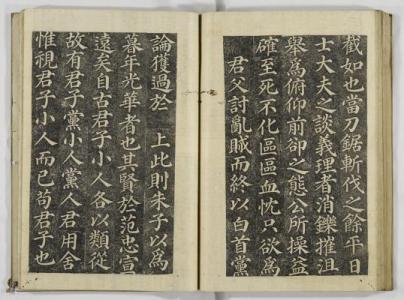 截如也當刀鋸斬伐之餘平日
士大夫之談義理者消鑠摧沮
舉爲俯仰前卻之態公所操益
確至死不化區區血忱只欲爲
君父討亂賊而終以白首黨
論獲過於　上此則朱子以爲
暮年光華者也其賢於范忠宣
遠矣自古君子小人各以類從
故有君子黨小人黨人君用舍
惟視君子小人而已苟君子也